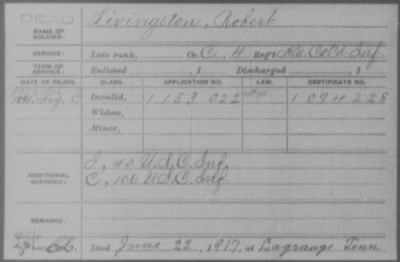 DEAD
NAME OF SOLDIER: Livingston, Robert
SERVICE: Late rank, Co. C, 4 Reg't Ala Col'd Inf
TERM OF SERVICE: Enlisted , 1 Discharged , 1
DATE OF FILING. CLASS. APPLICATION NO. LAW. CERTIFICATE NO.
1891, Aug. 27 Invalid, 1153 022 1094 225
Widow,
Minor,
ADDITIONAL SERVICES: I, 40 U.S.C. Inf.
C, 106 U.S.C. Inf
REMARKS:
Died June 22, 1917, at Lagrange Tenn